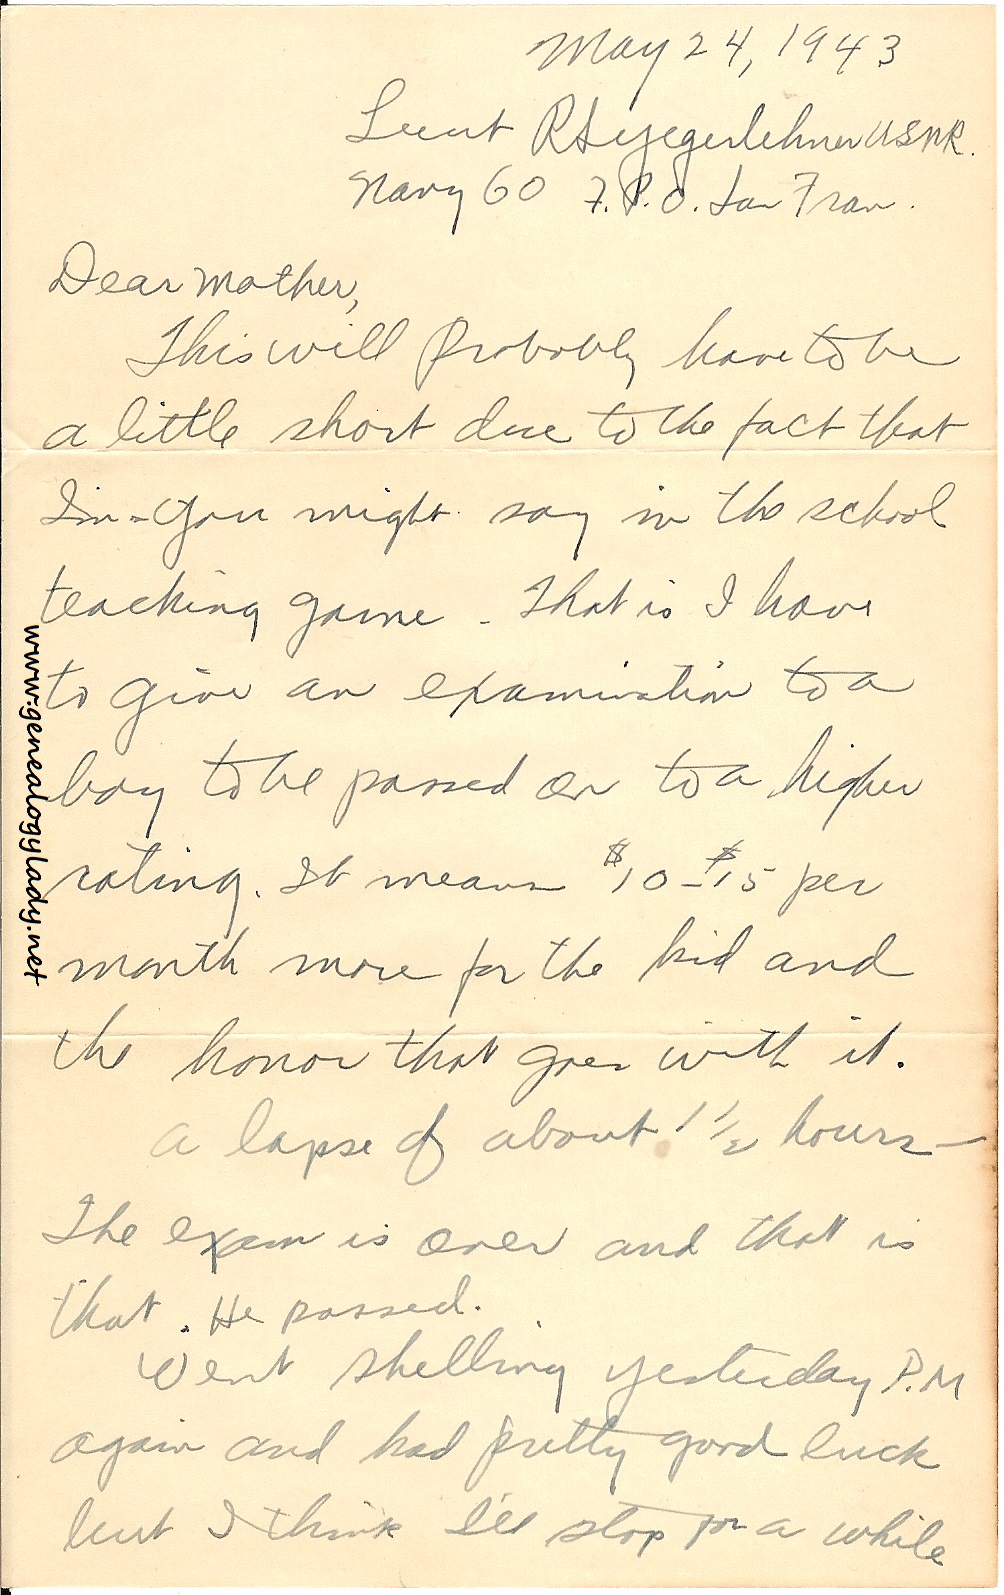 May 24, 1943
Lieut R S Yegerlehner USNR.
Navy 60 F.P.O. San Fran.
Dear Mother,
This will probably have to be
a little short due to the fact that
I'm - you might say in the school
teaching game - That is I have
to give an examination to a
boy to be passed on to a higher
rating. It means $10-$15 per
month more for the kid and
the honor that goes with it.
A lapse of about 1 1/2 hours—
The exam is over and that is
that. He passed.
Went shelling yesterday P.M
again and had pretty good luck
but I think I'll stop for a while
www.genealogylady.net